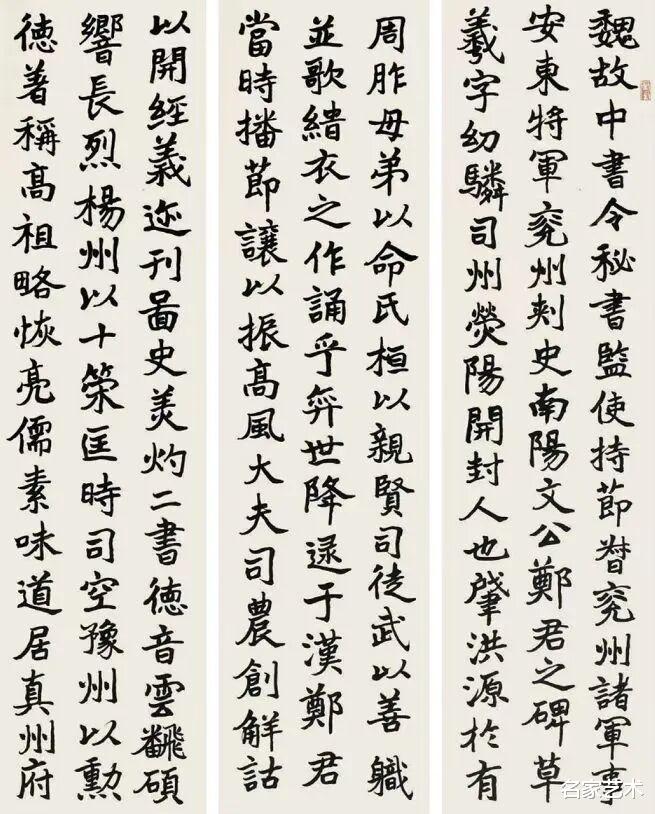 魏故中書令秘書監使持節督兗州諸軍事
安東將軍兗州刾史南陽文公鄭君之碑草
羲字幼驎司州熒陽開封人也肇洪源於有
周胙母弟以命氏桓以親賢司徒武以善軄
並歌緇衣之作誦乎弈世降逯于漢鄭君
當時播節讓以振高風大夫司農創解詁
以開經義迹刊啚史美灼二書徳音雲飜碩
響長烈楊州以十策匡時司空豫州以勳
徳著稱高祖略恢亮儒素味道居真州府
名家艺术